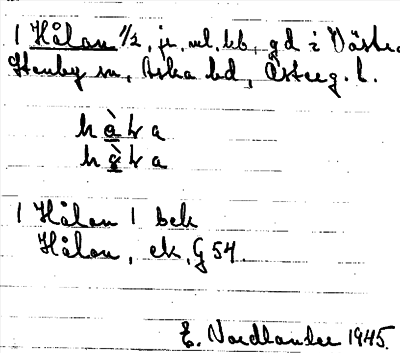 1 Hålan 1/2, jr, ml, kb, gd i Väste
Stenby sn, Aska hd, Österg. l.
h å l a
h å l a
1 Hålan 1 bek
Hålan, ek, G 54.
E. Nordlander 1945.